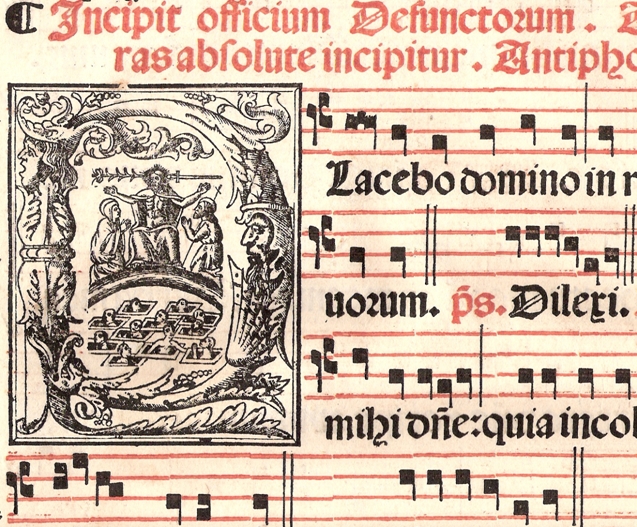 ¶ Incipit officium Defunctorum.
ras absolute incipitur. Antipho
Lacebo domino in r
uorum. p̄s. Dilexi.
mihi dn̄e: quia incol